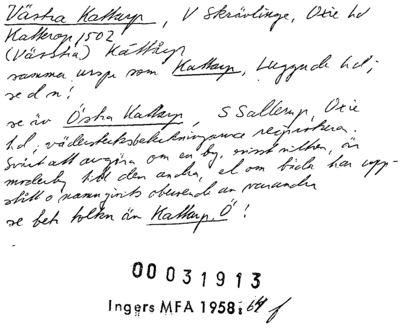 Västra Kattarp, V Skrävlinge, Oxie hd
Katterop 1502
(Västra) Káttàrp
samma urspr som Kattarp, Luggude hd;
se d n!
se äv Östra Kattarp, S Sallerup, Oxie
hd; väderstecksbeteckningarna reciprokera.
Svårt att avgöra om en by, ovisst vilken, är
moderby till den andra, el om båda har upp-
stått o namngivits oberoende av varandra
se bet tolkn än Kattarp, Ö!
00 031913
Ingers MFA 1958: 64 f